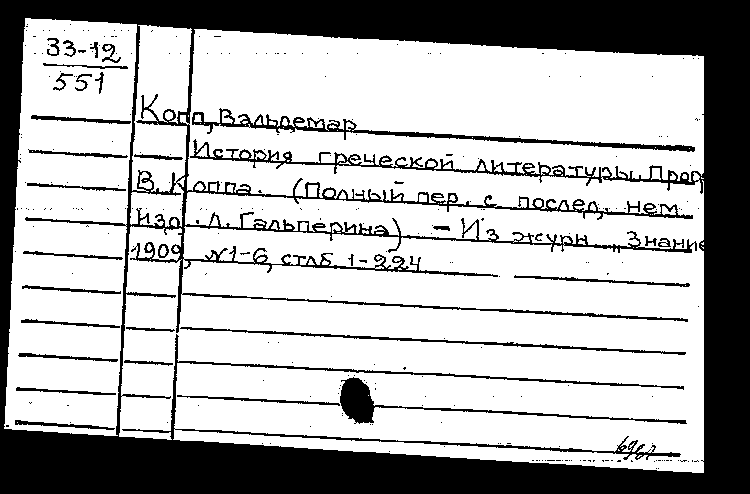 33-12
551
Копп, Вальдемар
История греческой литературы. Проф.
В. Коппа. (Полный пер. с послед. нем.
изд. Л. Гальперина). - Из журн. „Знание
1909, №1-6, стлб. 1-224